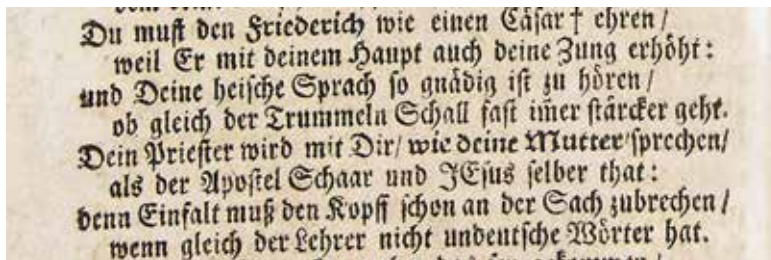 Du must den Friederich wie einen Cäsar † ehren /
weil Er mit deinem Haupt auch deine Zung erhöht :
und Deine heische Sprach so gnädig ist zu hören /
ob gleich der Trummeln Schall fast im̃er stärcker geht.
Dein Priester wird mit Dir / wie deine Mutter sprechen /
als der Apostel Schaar und JEsus selber that :
denn Einfalt muß den Kopff schon an der Sach zubrechen /
wenn gleich der Lehrer nicht undeutsche Wörter hat.